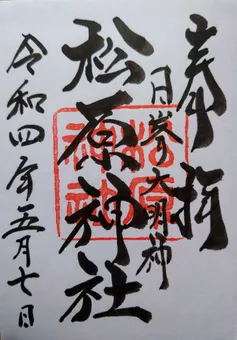 奉拝
日峯大明神
松原神社
松原神社
令和四年五月七日